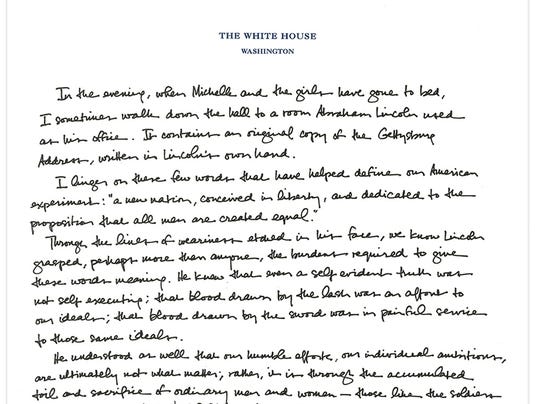 THE WHITE HOUSE
WASHINGTON
In the evening, when Michelle and the girls have gone to bed,
I sometimes walk down the hall to a room Abraham Lincoln used
as his office. It contains an original copy of the Gettysburg
Address, written in Lincoln's own hand.
I linger on these few words that have helped define our American
experiment: "a new nation, conceived in liberty, and dedicated to the
proposition that all men are created equal."
Through the lines of weariness etched in his face, we know Lincoln
grasped, perhaps more than anyone, the burdens required to give
these words meaning. He knew that even a self evident truth was
not self executing; that blood drawn by the lash was an affront to
our ideals; that blood drawn by the sword was in painful service
to those same ideals.
He understood as well that our humble efforts, our individual ambitions,
are ultimately not what matter; rather, it is through the accumulated
toil and sacrifice of ordinary men and women – those like the soldiers